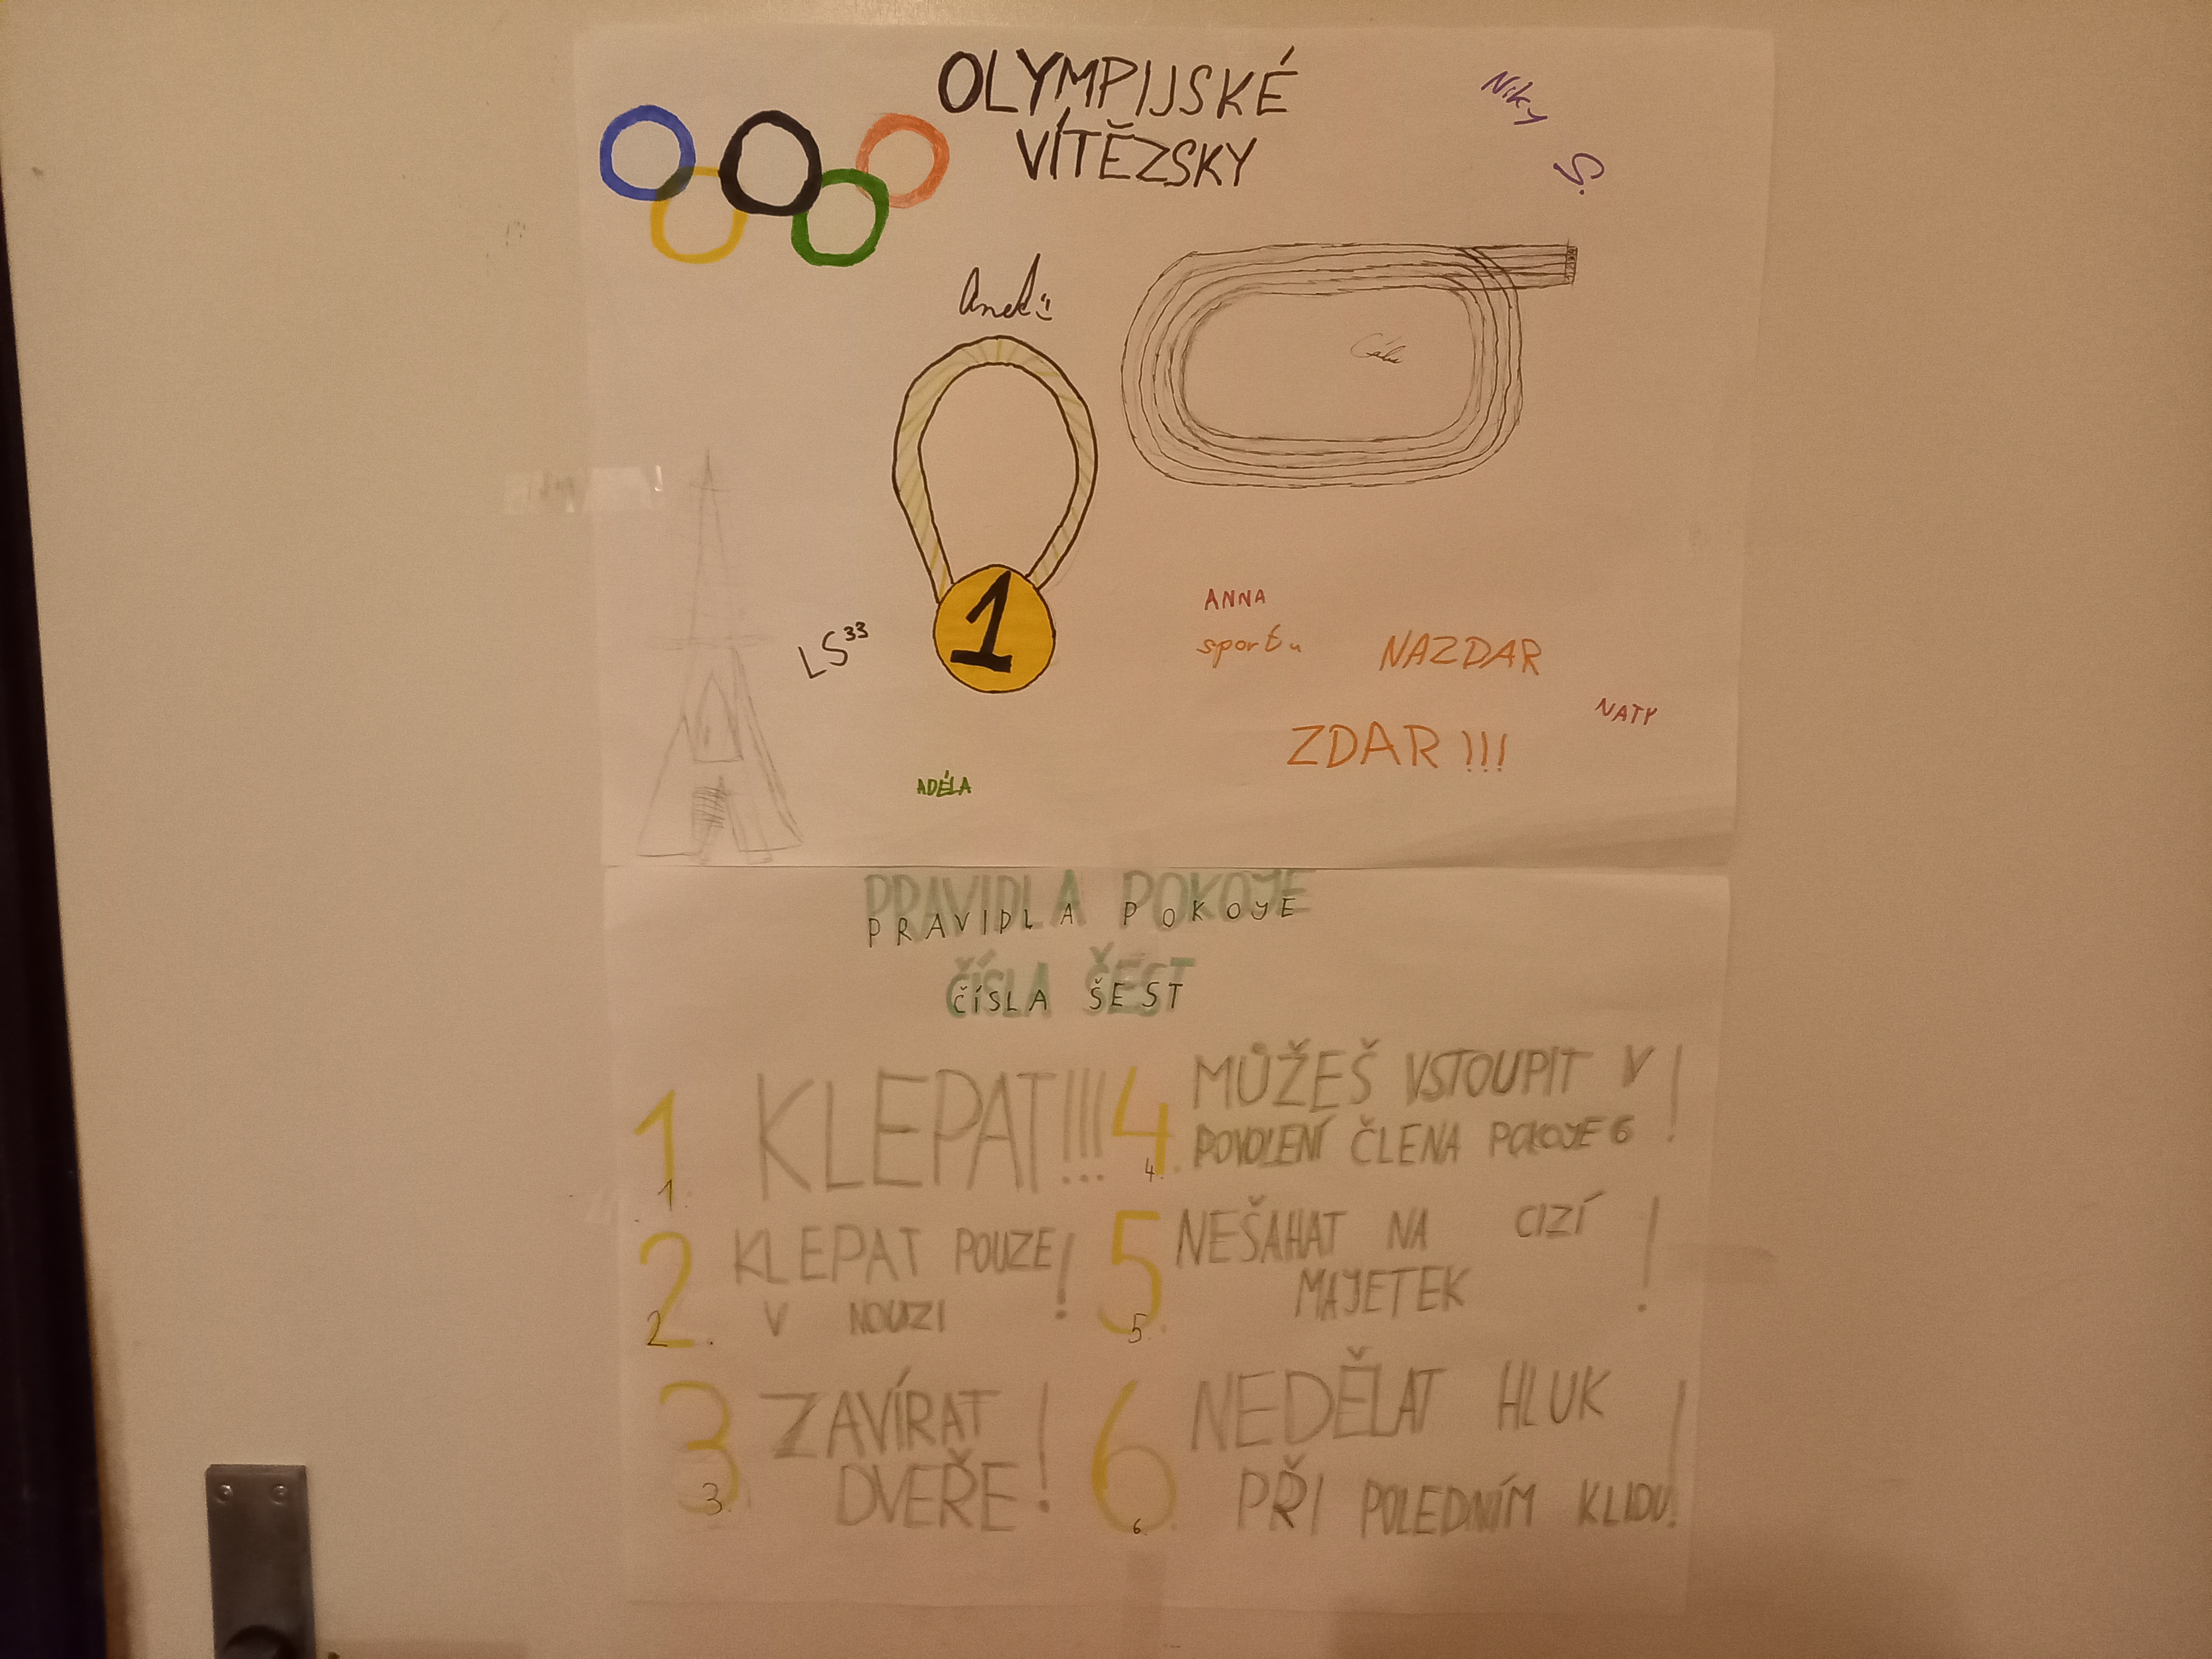 OLYMPIJSKÉ
VÍTĚZSKY
Niky
S.
1
LS³³
ANNA
sportu NAZDAR
NATY
ZDAR!!!
ADÉLA
PRAVIDLA POKOJE
PRAVIDLA POKOJE
ČÍSLA ŠEST
ČÍSLA ŠEST
1 KLEPAT!!!
1.
2 KLEPAT POUZE!
V NOUZI
2.
3 ZAVÍRAT
DVEŘE!
3.
4 MŮŽEŠ VSTOUPIT V
POVOLENÍ ČLENA POKOJE 6!
4.
5 NEŠAHAT NA CIZÍ
MAJETEK!
5.
6 NEDĚLAT HLUK
PŘI POLEDNÍM KLIDU!
6.